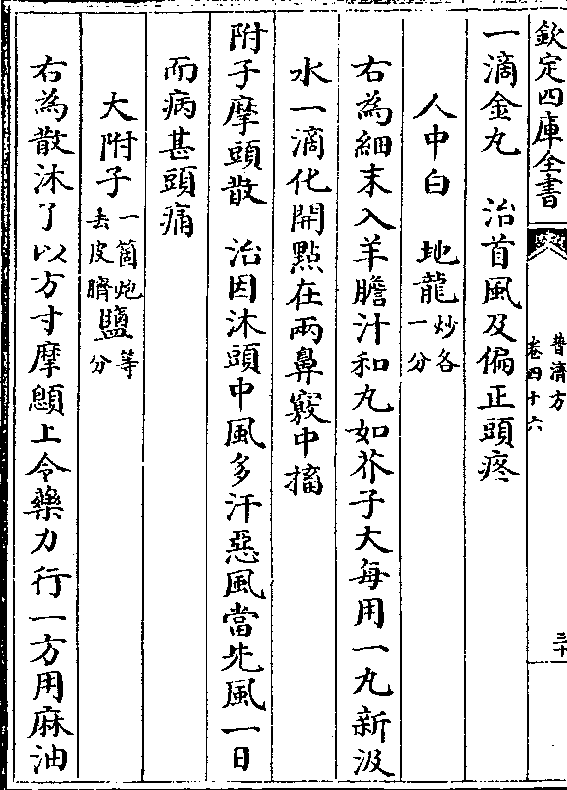 欽定四庫全書
普濟方
卷四十六
三十
一滴金丸　治首風及偏正頭疼
人中白　地龍炒各一分
右為細末入羊膽汁和丸如芥子大每用一丸新汲
水一滴化開點在兩鼻竅中搐
附子摩頭散　治因沐頭中風多汗惡風當先風一日
而病甚頭痛
大附子一箇炮去皮臍鹽等分
右為散沐了以方寸摩顖上令藥力行一方用麻油